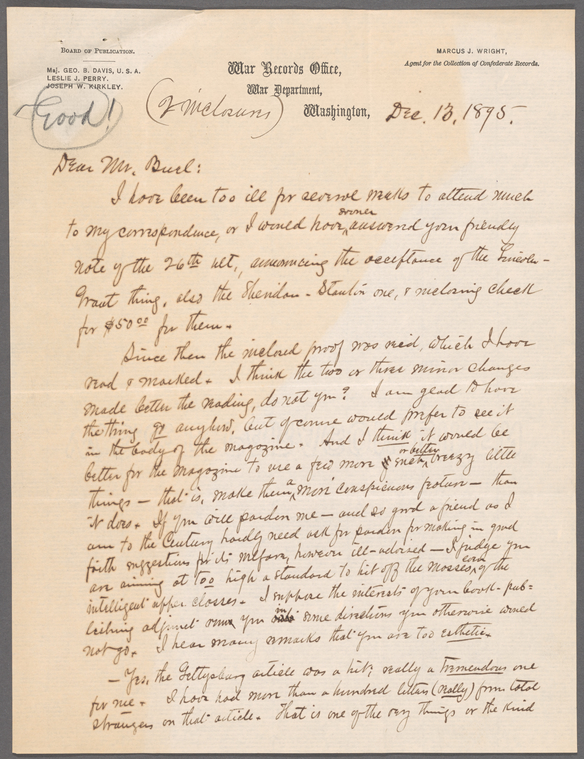 Board of Publication.
Maj. Geo. B. Davis, U. S. A.
Leslie J. Perry.
Joseph W. Kirkley.
MARCUS J. WRIGHT,
Agent for the Collection of Confederate Records.
War Records Office,
War Department,
Washington, Dec. 13, 1895.
Good!
(2 inclosures)
Dear Mr. Buel:
I have been too ill for several weeks to attend much
to my correspondence, or I would have sooner answered your friendly
note of the 26th ult., announcing the acceptance of the Lincoln-
Grant thing, also the Sheridan-Stanton one, & inclosing check
for $50.00 for them.
Since then the inclosed proof was recd, which I have
read & marked. I think the two or three minor changes
made better the reading, do not you? I am glad to have
the thing go anyhow, but of course would prefer to see it
in the body of the magazine. And I think it would be
better for the Magazine to use a few more such breezy little
things — that is, make them a more conspicuous feature — than
it does. If you will pardon me — and so good a friend as I
am to the Century hardly need ask for pardon for making in good
faith suggestions for its welfare, however ill-advised — I judge you
are aiming at too high a standard to hit off the masses, even of the
intelligent upper classes. I suppose the interests of your book-pub-
lishing adjunct you in some directions you otherwise would
not go. I hear many remarks that you are too esthetic.
— Yes, the Gettysburg article was a hit; really a tremendous one
for me. I have had more than a hundred letters (really) from total
strangers on that article. That is one of the very things or the kind